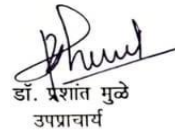 डॉ. प्रशांत मुळे
उपप्राचार्य